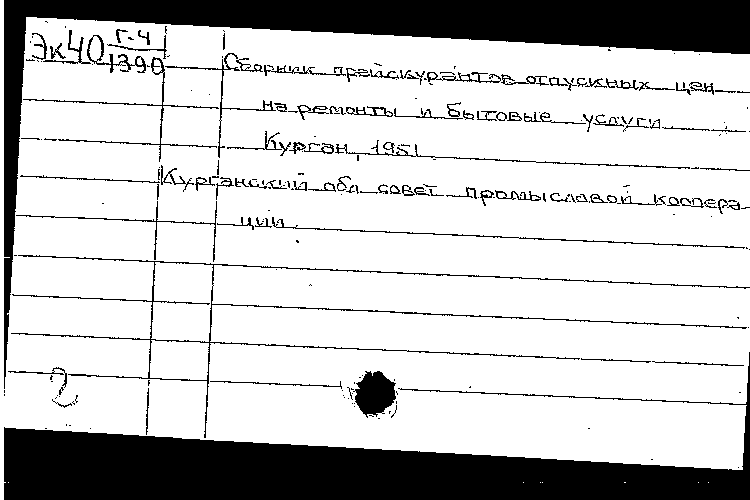 Эк40 Г-4
1390
Сборник прейскурантов отпускных цен
на ремонты и бытовые услуги.
Курган, 1951.
Курганский обл совет промысловой коопера
ции.
2